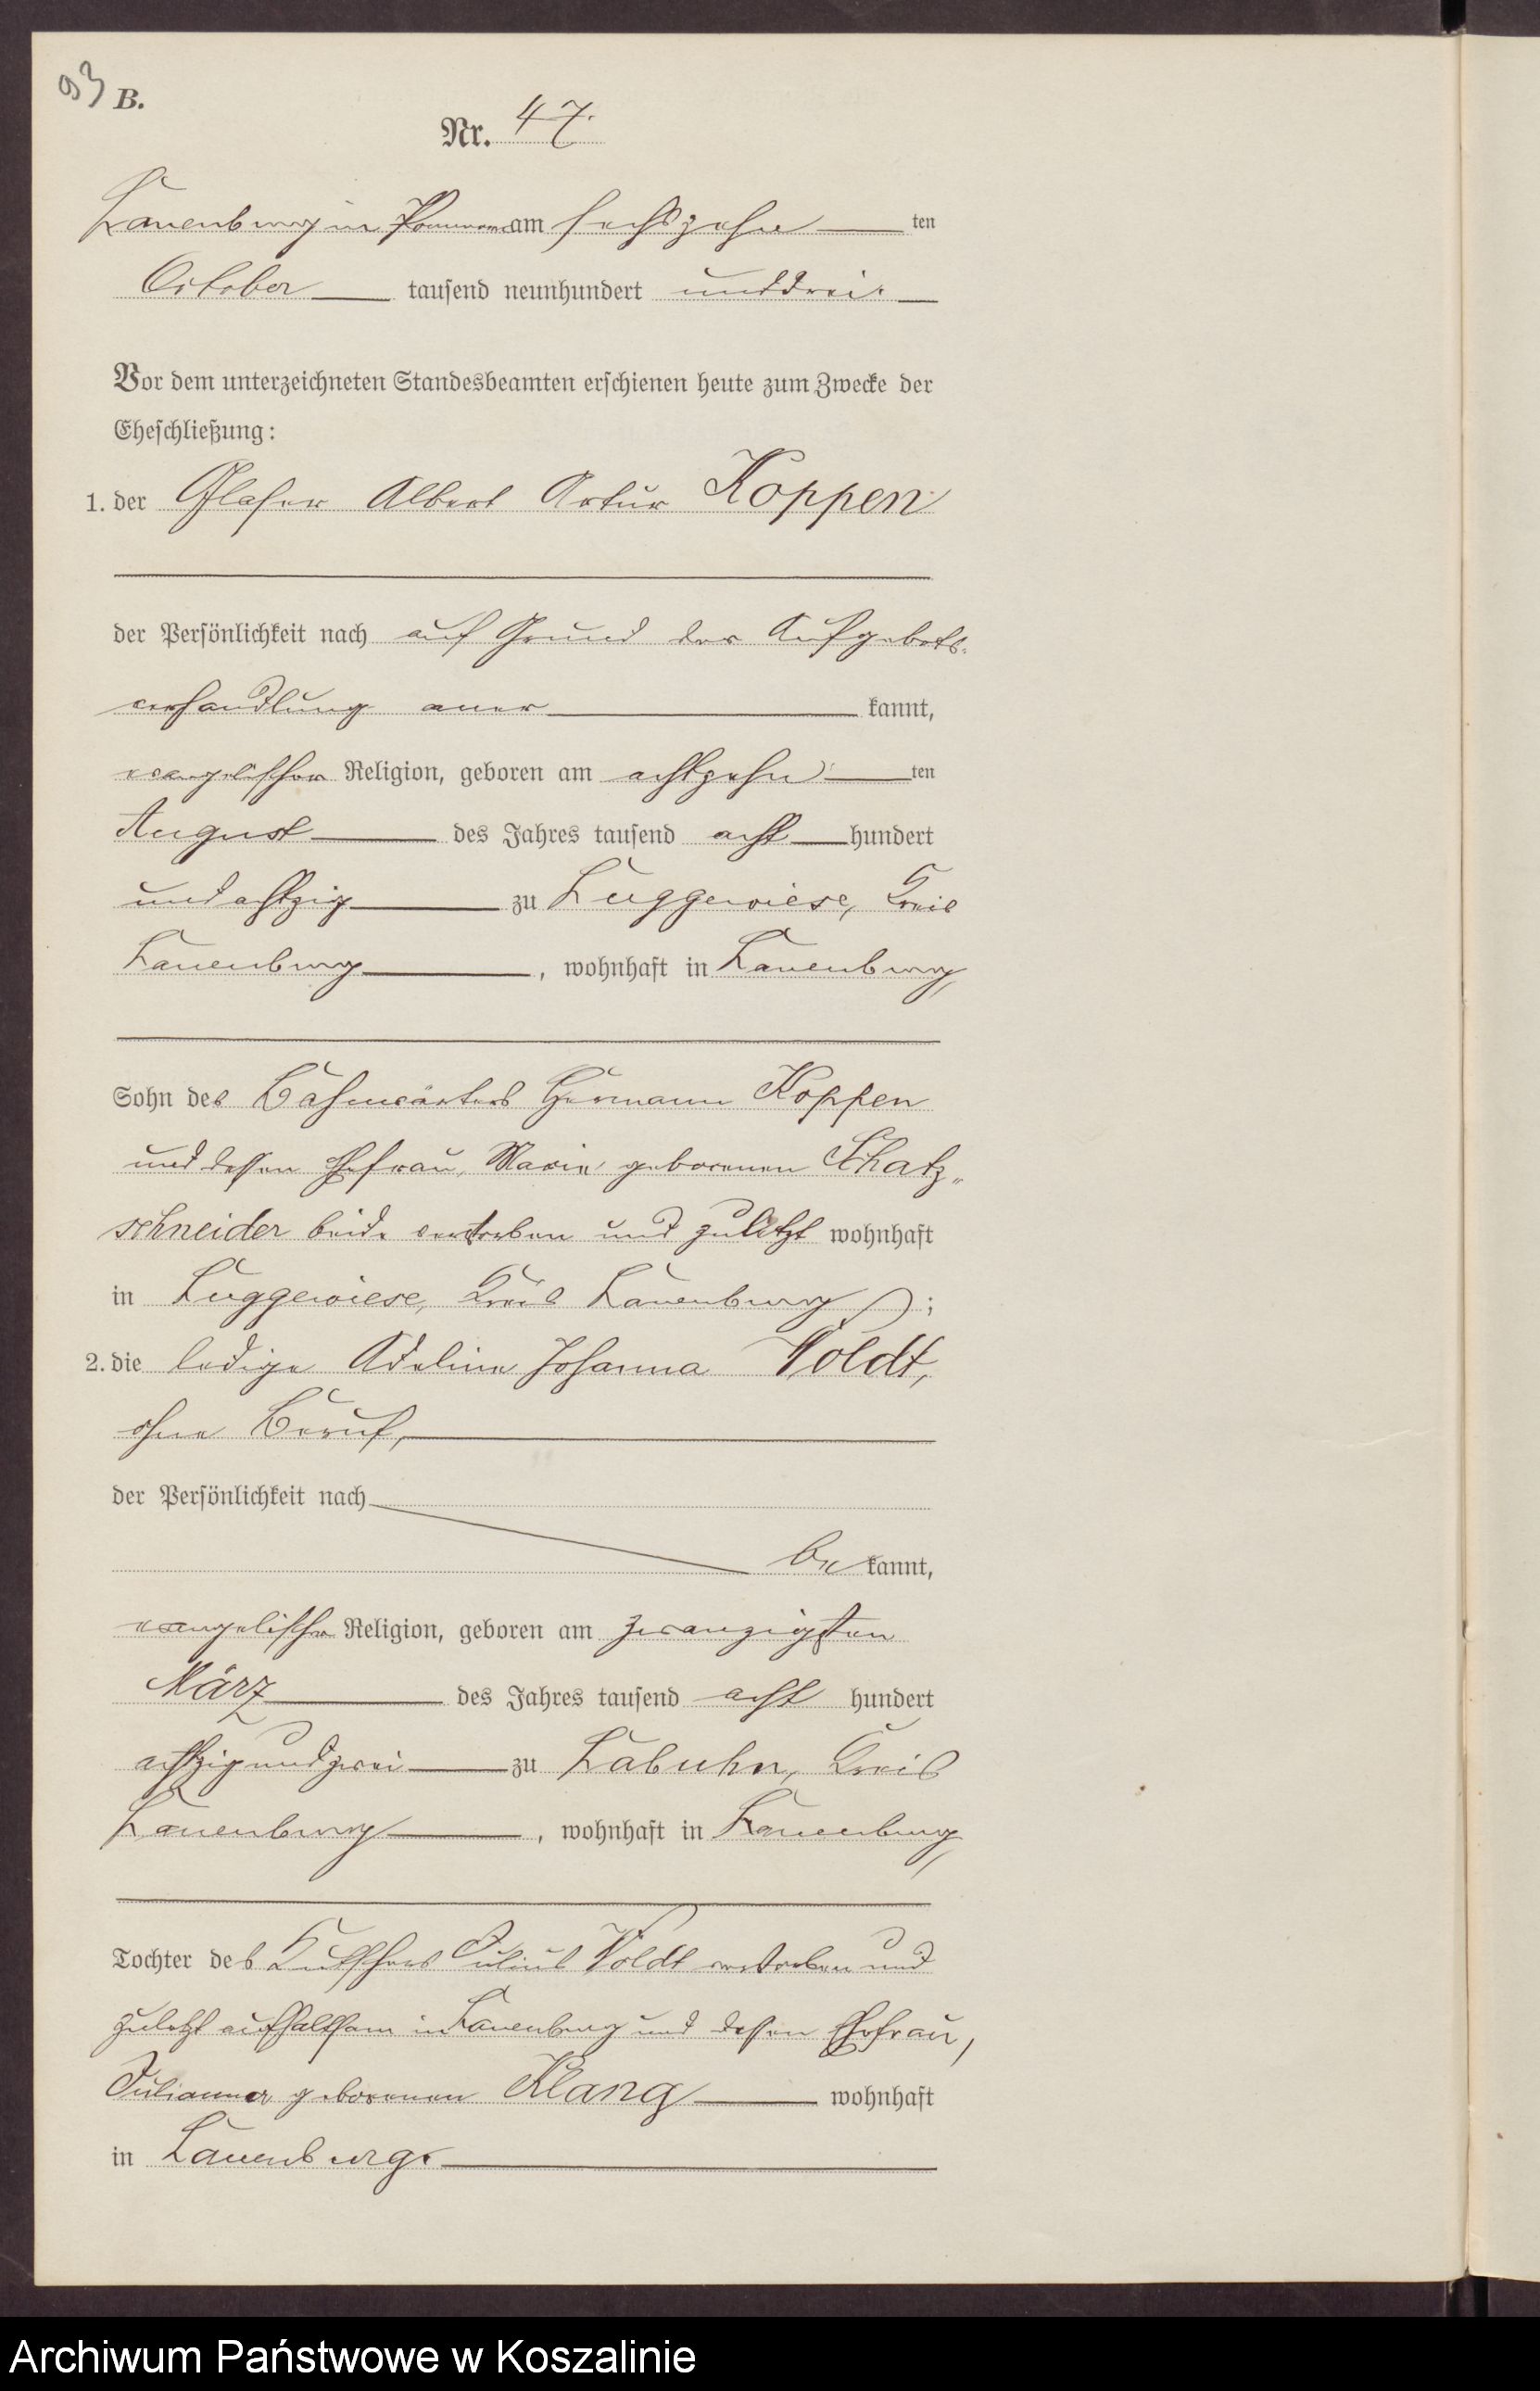 93 B.
Nr. 47.
Lauenburg in Pommern am sechszehn ten
October tausend neunhundert und drei.
Vor dem unterzeichneten Standesbeamten erschienen heute zum Zwecke der
Eheschließung:
1. der Glaser Albert Artur Koppen
der Persönlichkeit nach auf Grund der Aufgebots-
verhandlung aner kannt,
evangelischer Religion, geboren am achtzehn ten
August des Jahres tausend acht hundert
und achtzig zu Luggewiese, Kreis
Lauenburg, wohnhaft in Lauenburg,
Sohn des Bahnwärters Hermann Koppen
und dessen Ehefrau, Marie geborenen Schatz-
schneider beide verstorben und zuletzt wohnhaft
in Luggewiese, Kreis Lauenburg;
2. die ledige Adeline Johanna Voldt,
ohne Beruf,
der Persönlichkeit nach
be kannt,
evangelischer Religion, geboren am zwanzigsten
März des Jahres tausend acht hundert
achtzig und zwei zu Labuhn, Kreis
Lauenburg, wohnhaft in Lauenburg,
Tochter des Kutschers Julius Voldt verstorben und
zuletzt aufhaltsam in Lauenburg und dessen Ehefrau,
Julianna geborenen Klang wohnhaft
in Lauenburg.
Archiwum Państwowe w Koszalinie